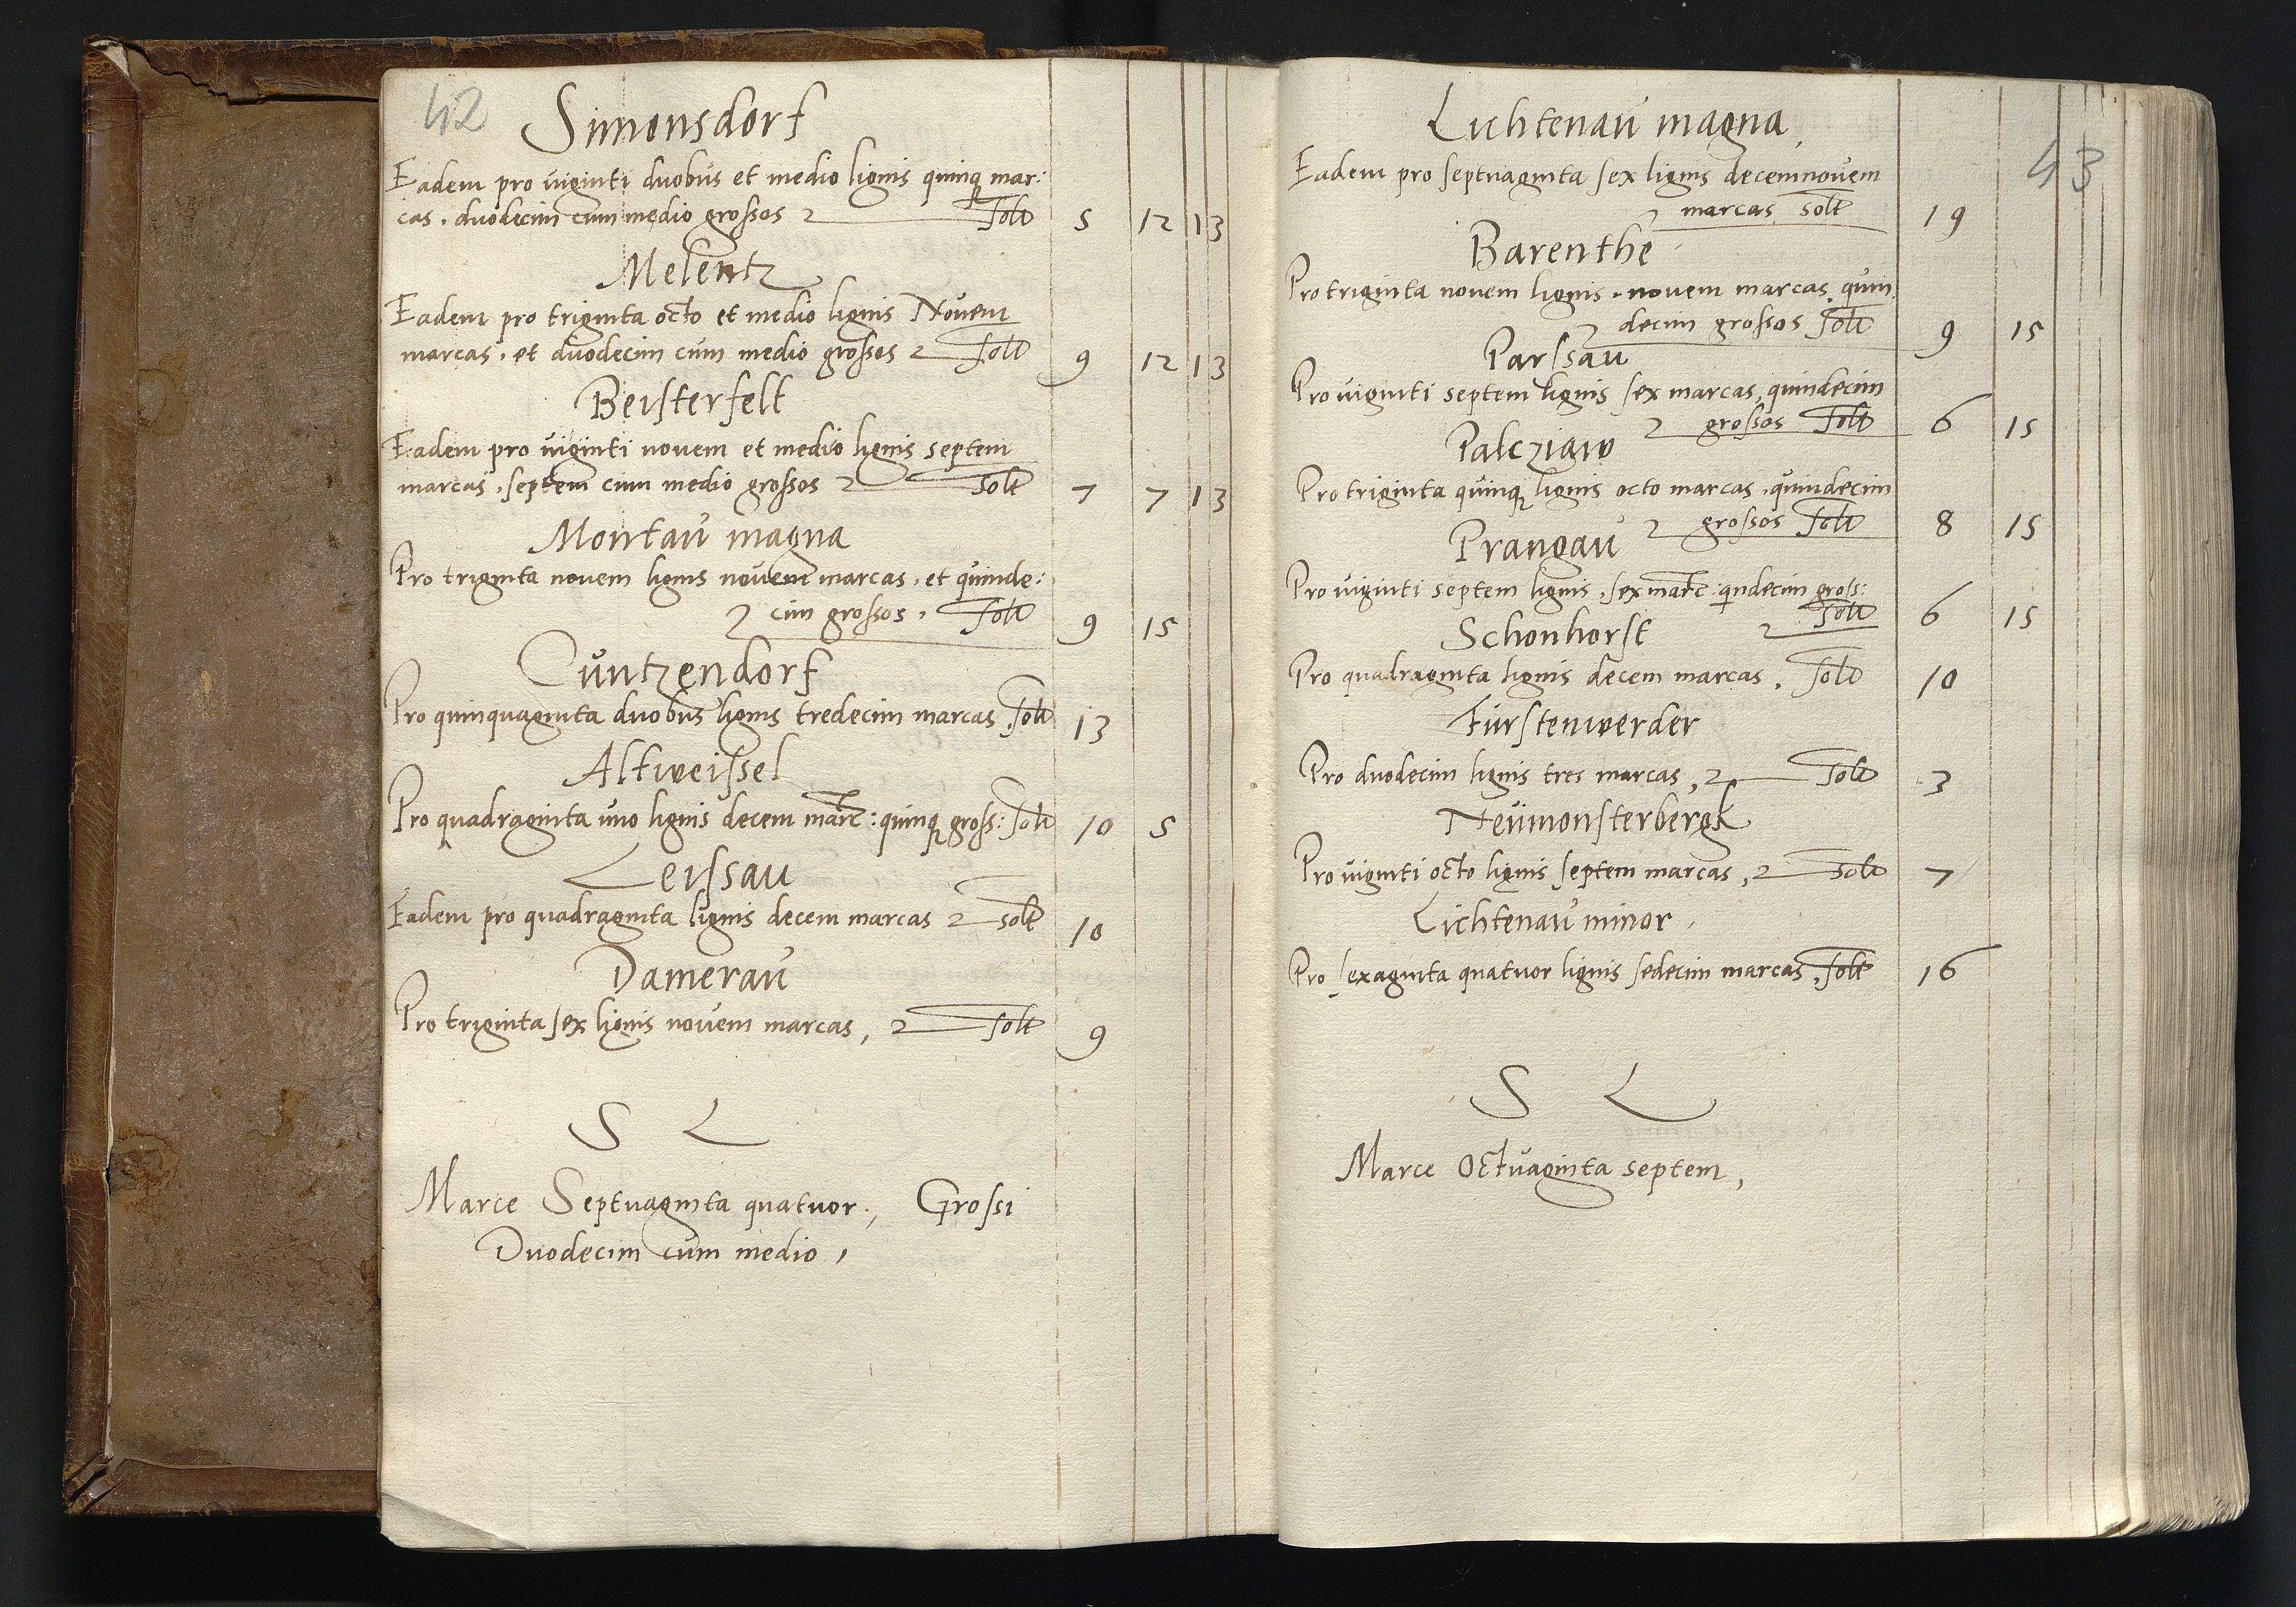 42
Simonsdorf
Eadem pro viginti duobus et medio lignis quinq mar:
cas. duodecim cum medio grossos solt 5 12 1 3
Melentz
Eadem pro triginta octo et medio lignis Novem
marcas. et duodecim cum medio grossos solt 9 12 1 3
Beisterfelt
Eadem pro viginti novem et medio lignis septem
marcas. septem cum medio grossos solt 7 7 1 3
Montau magna
Pro triginta novem lignis novem marcas. et quinde:
cim grossos. solt 9 15
Cuntzendorf
Pro quinquaginta duobus lignis tredecim marcas solt 13
Altweissel
Pro quadraginta uno lignis decem marc: quinq gross: solt 10 5
Leissau
Eadem pro quadraginta lignis decem marcas solt 10
Damerau
Pro triginta sex lignis novem marcas, solt 9
S L
Marce Septuaginta quatuor, Grossi
Duodecim cum medio,
43
Lichtenau magna
Eadem pro septuaginta sex lignis decemnovem
marcas solt 19
Barenthe
Pro triginta novem lignis. novem marcas. quin
decim grossos solt 9 15
Parssau
Pro viginti septem lignis sex marcas, quindecim
grossos solt 6 15
Palcziaw
Pro triginta quinq lignis octo marcas. quindecim
grossos solt 8 15
Prangau
Pro viginti septem lignis. sex marc: qindecim gross:
solt 6 15
Schonhorst
Pro quadraginta lignis decem marcas. solt 10
Fürstenwerder
Pro duodecim lignis tres marcas, solt 3
Neümonsterbergk
Pro viginti octo lignis septem marcas, solt 7
Lichtenau minor.
Pro sexaginta quatuor lignis sedecim marcas, solt 16
S L
Marce Octuaginta septem,